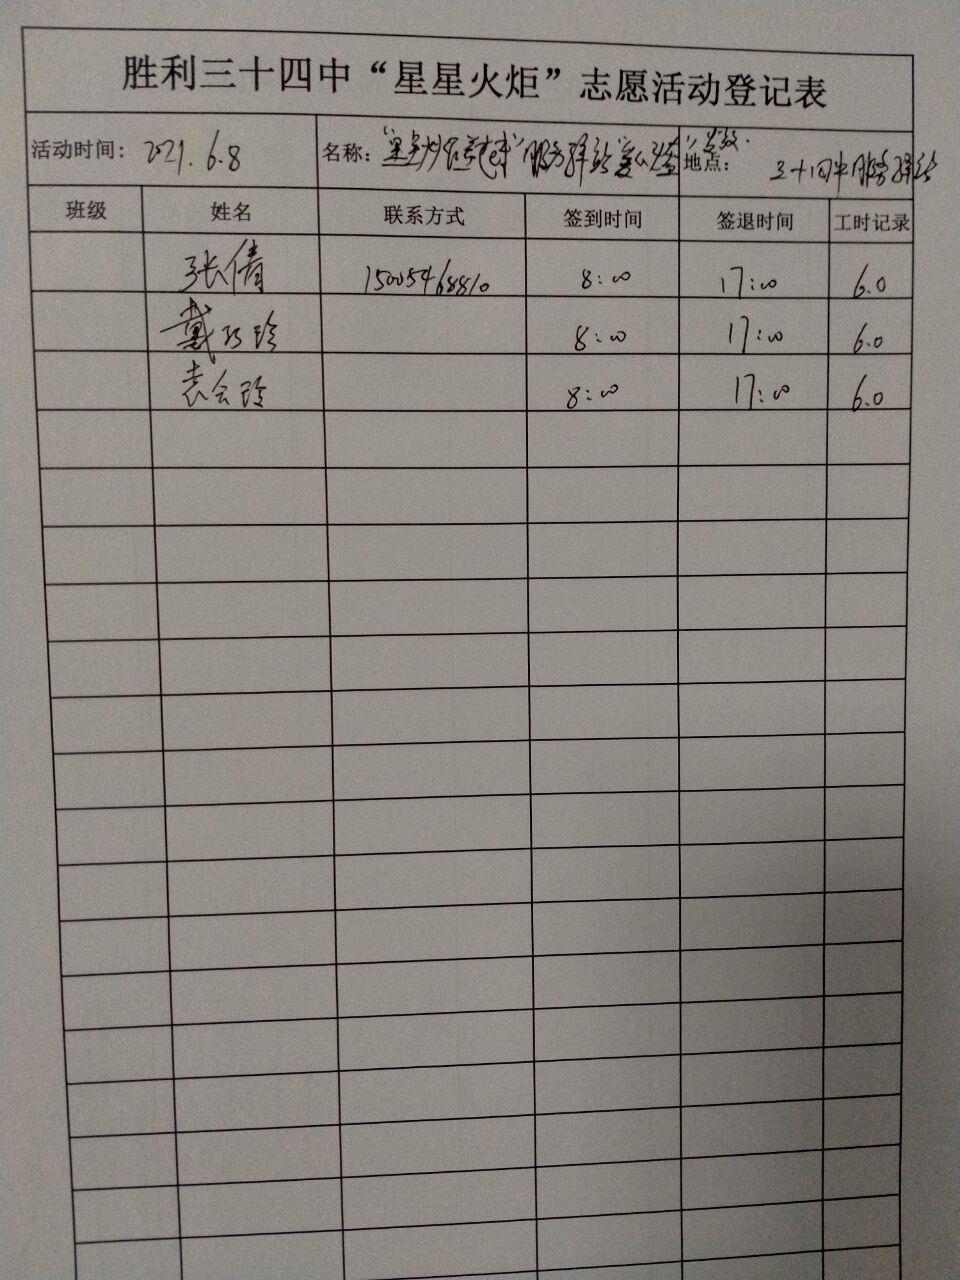 胜利三十四中“星星火炬”志愿活动登记表
活动时间: 2021.6.8 名称: 服务驿站 地点: 三十四中服务驿站
班级 姓名 联系方式 签到时间 签退时间 工时记录
张倩 15005468810 8:00 17:00 6.0
戴巧玲 8:00 17:00 6.0
袁会玲 8:00 17:00 6.0